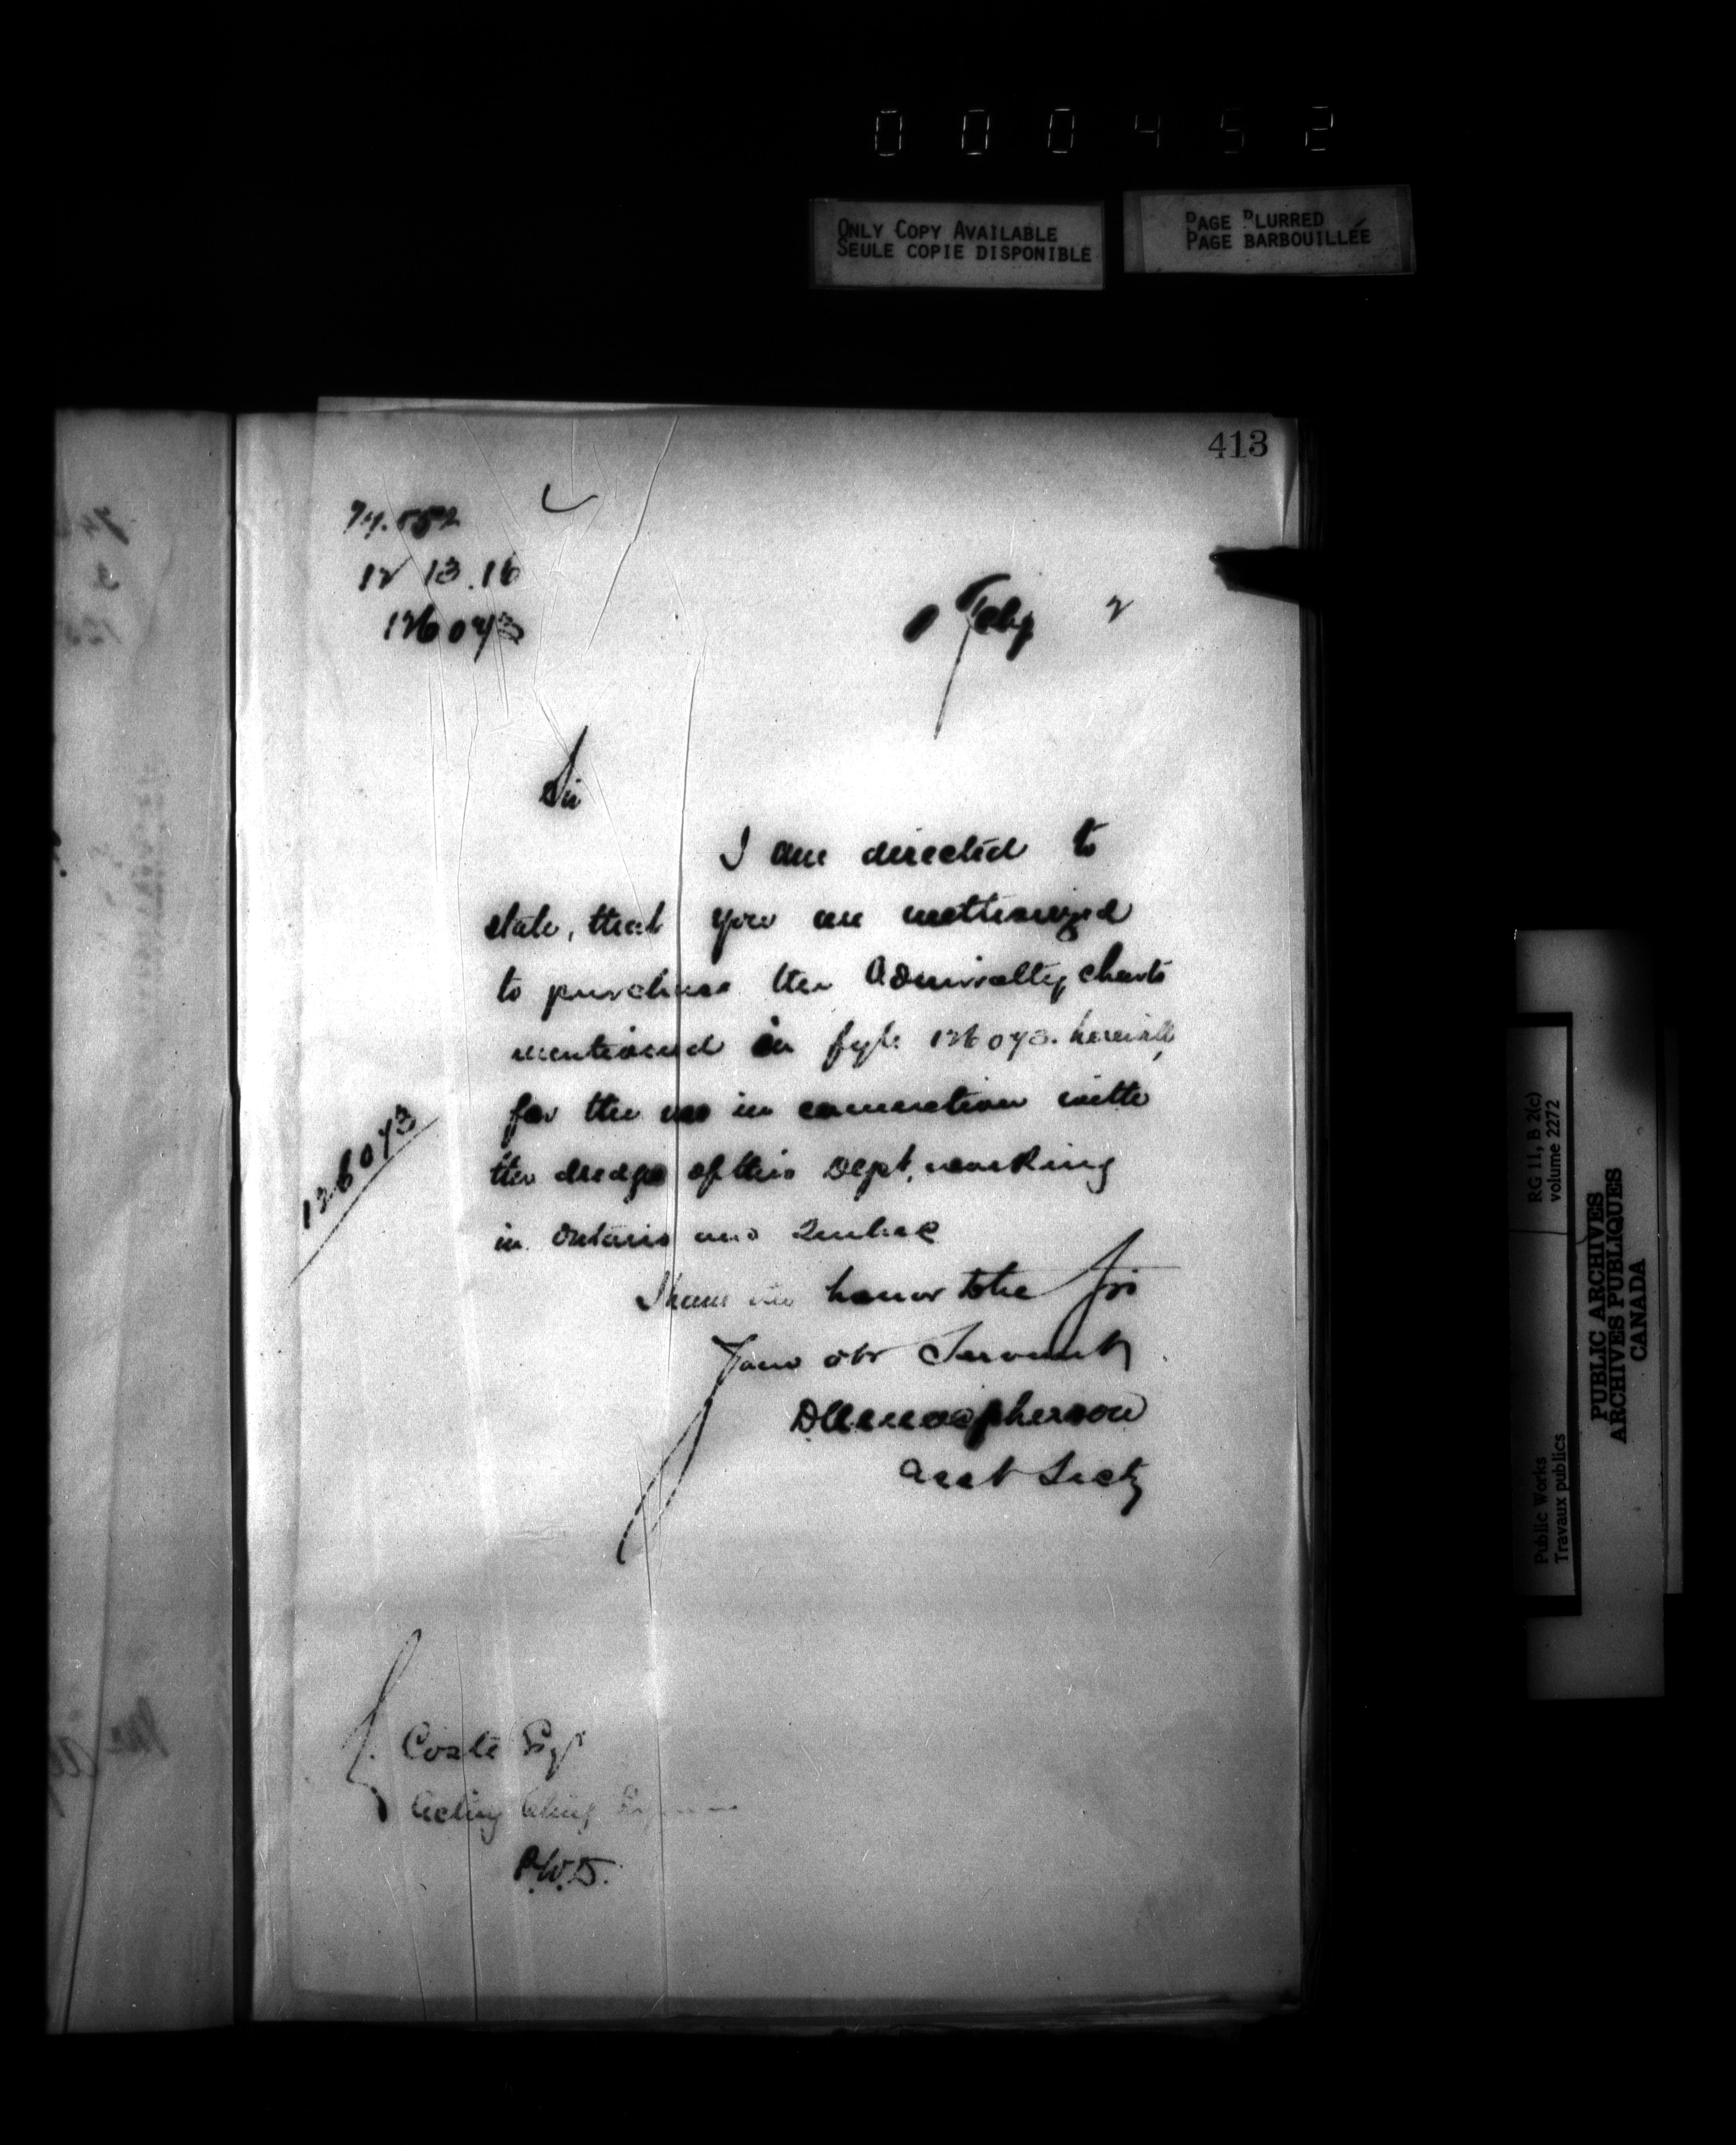 000452
ONLY COPY AVAILABLE
SEULE COPIE DISPONIBLE
PAGE BLURRED
PAGE BARBOUILLÉE
413
12 13.16
126073
Feby 2
Sir
I am directed to
state, that you are authorized
to purchase the Admiralty charts
mentioned in fyle 126073. herewith,
for the use in connection with
the dredges of this Dept. working
in Ontario and Quebec
126073
I have the honor to be Sir
Your obt Servant
Macpherson
Asst Secty
Coste Esqr
Acting Chief Engineer
P.W.D.
RG 11, B 2(c)
volume 2272
Public Works
Travaux publics
PUBLIC ARCHIVES
ARCHIVES PUBLIQUES
CANADA